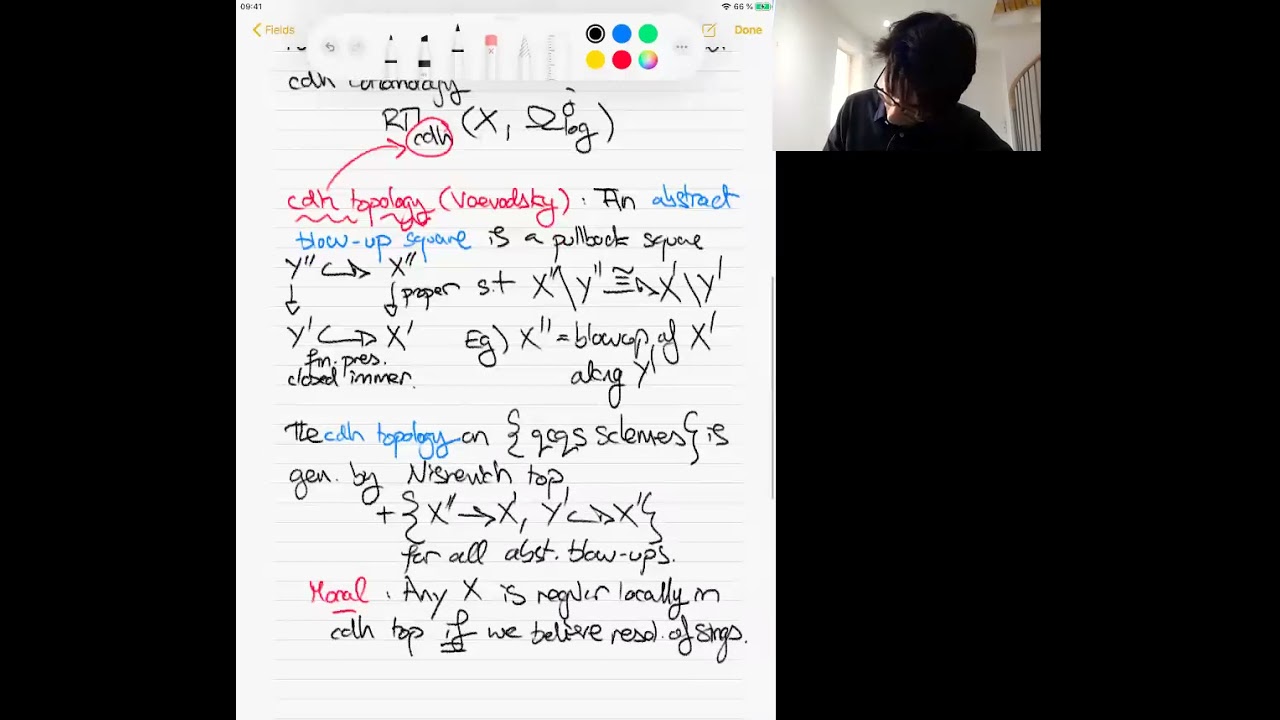 09:41
66 %
Fields
Done
cdh
RΓ cdh (X, Ω^j_log)
cdh topology (Voevodsky) : An abstract
blow-up square is a pullback square
Y'' ↪ X''
↓ ↓ proper s.t X''\Y'' ≅→ X'\Y'
Y' ↪ X' Eg) X'' = blowup of X'
fin. pres.
closed immer. along Y'
The cdh topology on {qcqs schemes} is
gen. by Nisnevich top,
+ {X'' → X', Y' ↪ X'}
for all abst. blow-ups.
Moral : Any X is regular locally in
cdh top if we believe resol. of sings.